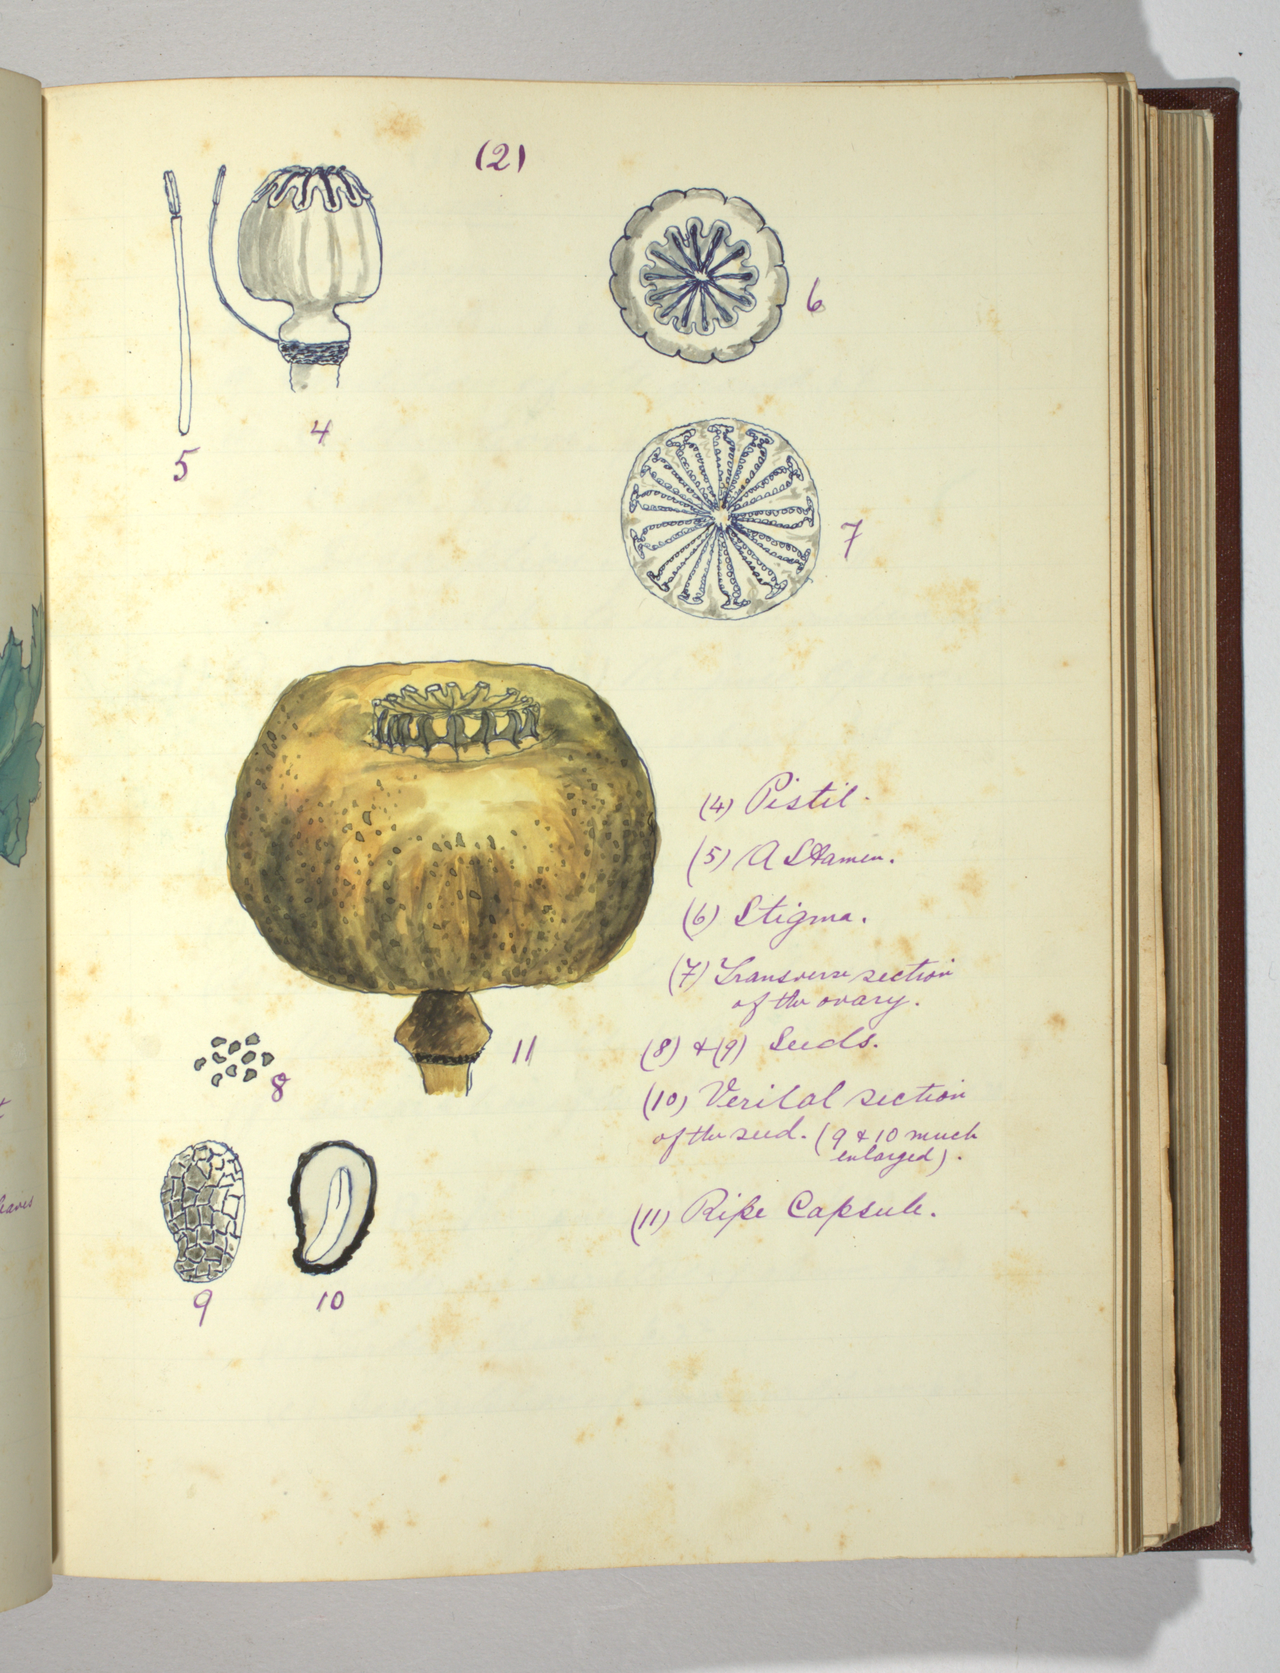 (2)
5
4
6
7
11
8
9
10
(4) Pistil.
(5) A Stamen.
(6) Stigma.
(7) Transverse section
of the ovary.
(8) & (9) Seeds.
(10) Verital section
of the seed. (9 & 10 much
enlarged).
(11) Ripe Capsule.
leaves